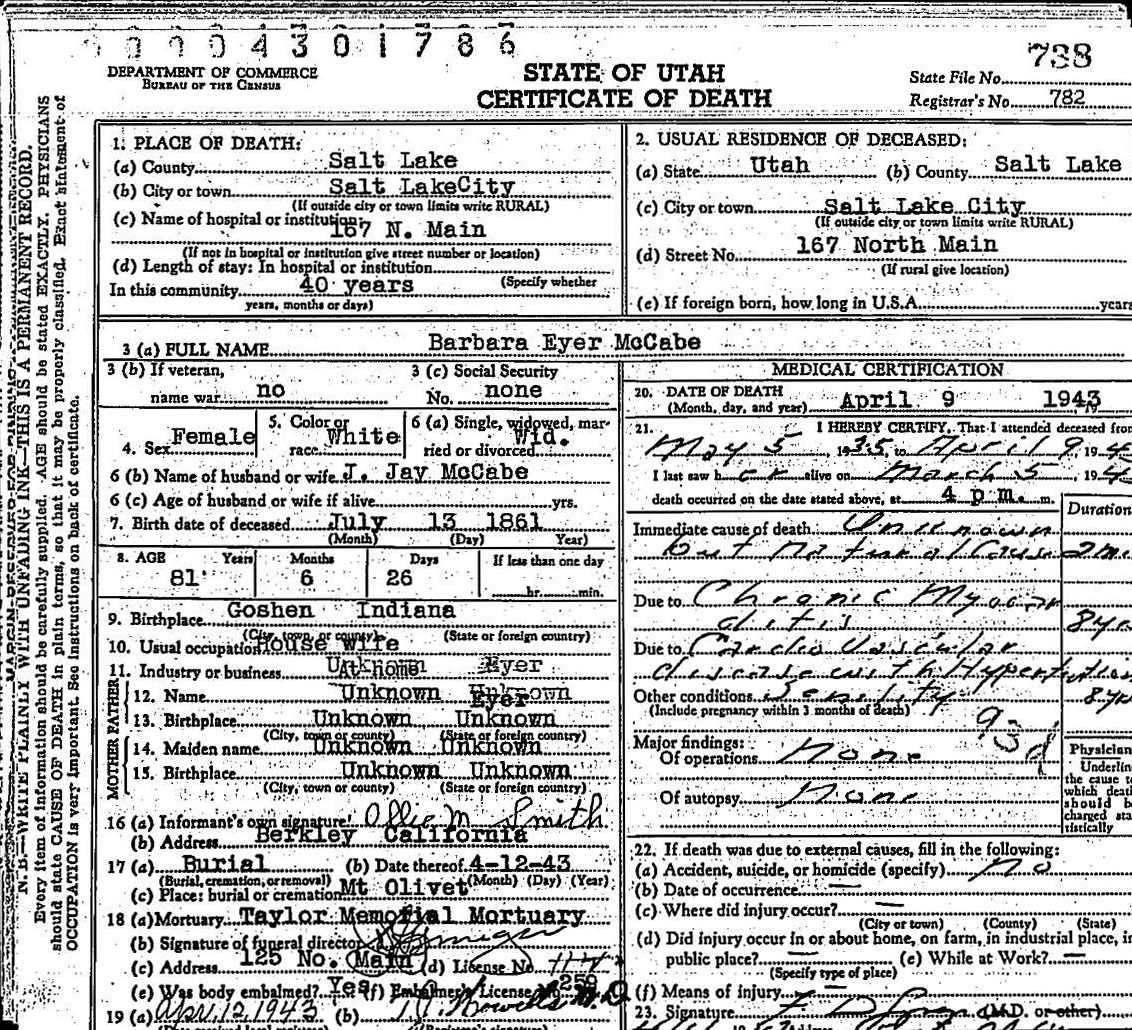 0 0 0 4 3 0 1 7 8 6
DEPARTMENT OF COMMERCE
BUREAU OF THE CENSUS
STATE OF UTAH
CERTIFICATE OF DEATH
State File No. 738
Registrar's No. 782
N. B.—WRITE PLAINLY WITH UNFADING INK—THIS IS A PERMANENT RECORD.
Every item of information should be carefully supplied. AGE should be stated EXACTLY. PHYSICIANS
should state CAUSE OF DEATH in plain terms, so that it may be properly classified. Exact statement of
OCCUPATION is very important. See instructions on back of certificate.
1. PLACE OF DEATH:
(a) County Salt Lake
(b) City or town Salt LakeCity
(If outside city or town limits write RURAL)
(c) Name of hospital or institution:
167 N. Main
(If not in hospital or institution give street number or location)
(d) Length of stay: In hospital or institution
(Specify whether
In this community 40 years
years, months or days)
2. USUAL RESIDENCE OF DECEASED:
(a) State Utah (b) County Salt Lake
(c) City or town Salt Lake City
(If outside city or town limits write RURAL)
(d) Street No. 167 North Main
(If rural give location)
(e) If foreign born, how long in U.S.A. years
3 (a) FULL NAME Barbara Eyer McCabe
3 (b) If veteran,
name war no
3 (c) Social Security
No. none
4. Sex Female
5. Color or
race White
6 (a) Single, widowed, mar-
ried or divorced Wid.
6 (b) Name of husband or wife J. Jay McCabe
6 (c) Age of husband or wife if alive yrs.
7. Birth date of deceased July 13 1861
(Month) (Day) Year)
8. AGE Years Months Days If less than one day
81 6 26 hr. min.
9. Birthplace Goshen Indiana
(City, town, or county) (State or foreign country)
10. Usual occupation House wife
11. Industry or business At home
FATHER
12. Name Unknown Eyer
13. Birthplace Unknown Unknown
(City, town or county) (State or foreign country)
MOTHER
14. Maiden name Unknown Unknown
15. Birthplace Unknown Unknown
(City, town or county) (State or foreign country)
16 (a) Informant's own signature Ollie M. Smith
(b) Address Berkley California
17 (a) Burial (b) Date thereof 4-12-43
(Burial, cremation, or removal) (Month) (Day) (Year)
(c) Place: burial or cremation Mt Olivet
18 (a) Mortuary Taylor Memorial Mortuary
(b) Signature of funeral director
(c) Address 125 No. Main (d) License No.
(e) Was body embalmed? Yes (f) Embalmer's License No. 259
19 (a) Apr. 12 1943 (b)
MEDICAL CERTIFICATION
20. DATE OF DEATH
(Month, day, and year) April 9 1943
21. I HEREBY CERTIFY, That I attended deceased from
May 5, 1935, to April 9 194
I last saw her alive on March 5, 194
death occurred on the date stated above, at 4 p m. m.
Duration
Immediate cause of death Unknown
but Natural Cause 2 m
Due to Chronic Myocar
ditis 8 y
Due to Cardio Vascular
disease with Hypertension
Other conditions Senility 8 y
(Include pregnancy within 3 months of death)
93d
Major findings:
Of operations None
Of autopsy None
Physician
Underlin
the cause to
which deat
should b
charged sta
tistically
22. If death was due to external causes, fill in the following:
(a) Accident, suicide, or homicide (specify) no
(b) Date of occurrence —
(c) Where did injury occur? —
(City or town) (County) (State)
(d) Did injury occur in or about home, on farm, in industrial place, in
public place? — (e) While at Work? —
(Specify type of place)
(f) Means of injury —
23. Signature (M.D. or other)